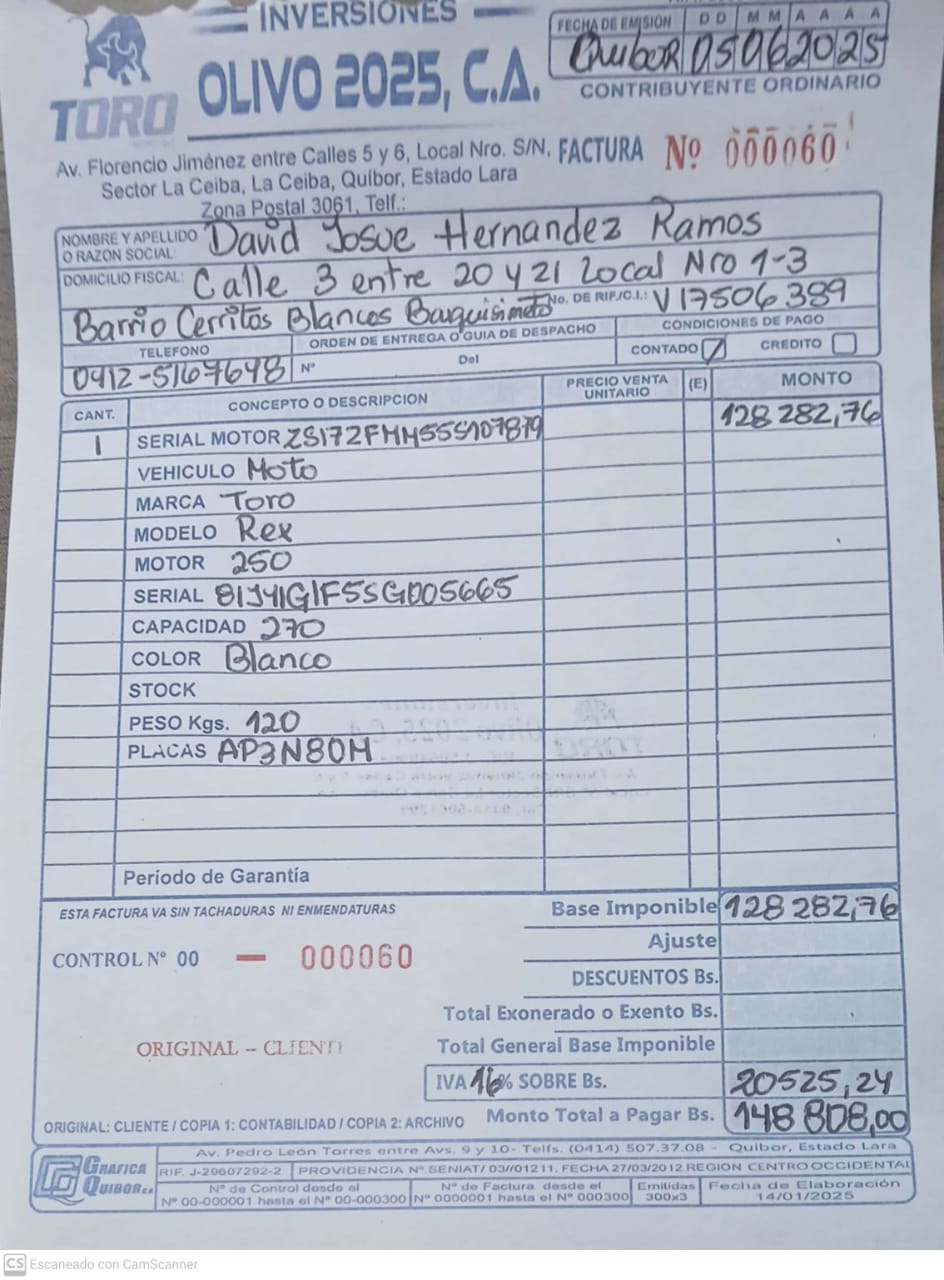 INVERSIONES
OLIVO 2025, C.A.
TORO
FECHA DE EMISIÓN D D M M A A A A
Quibor 05 06 2025
CONTRIBUYENTE ORDINARIO
Av. Florencio Jiménez entre Calles 5 y 6, Local Nro. S/N,
Sector La Ceiba, La Ceiba, Quíbor, Estado Lara
Zona Postal 3061, Telf.:
FACTURA Nº 000060
NOMBRE Y APELLIDO O RAZON SOCIAL: David Josue Hernandez Ramos
DOMICILIO FISCAL: Calle 3 entre 20 y 21 Local Nro 1-3
Barrio Cerritos Blancos Barquisimeto No. DE RIF./C.I.: V17506389
TELEFONO ORDEN DE ENTREGA O GUIA DE DESPACHO CONDICIONES DE PAGO
0412-5167648 Nº Del CONTADO CREDITO
CANT. CONCEPTO O DESCRIPCION PRECIO VENTA UNITARIO (E) MONTO
1 SERIAL MOTOR ZS172FMM5SS107879 128 282,76
VEHICULO Moto
MARCA Toro
MODELO Rex
MOTOR 250
SERIAL
CAPACIDAD 270
COLOR Blanco
STOCK
PESO Kgs. 120
PLACAS AP3N80M
Período de Garantía
ESTA FACTURA VA SIN TACHADURAS NI ENMENDATURAS
Base Imponible 128 282,76
Ajuste
CONTROL Nº 00 — 000060
DESCUENTOS Bs.
Total Exonerado o Exento Bs.
ORIGINAL – CLIENTE
Total General Base Imponible
IVA 16% SOBRE Bs. 20525,24
ORIGINAL: CLIENTE / COPIA 1: CONTABILIDAD / COPIA 2: ARCHIVO
Monto Total a Pagar Bs. 148 808,00
GRAFICA QUIBOR C.A.
Av. Pedro León Torres entre Avs. 9 y 10- Telfs. (0414) 507.37.08 - Quibor, Estado Lara
RIF. J-29607292-2 PROVIDENCIA Nº SENIAT/ 03//01211, FECHA 27/03/2012 REGION CENTRO OCCIDENTAL
Nº de Control desde el Nº 00-000001 hasta el Nº 00-000300
Nº de Factura desde el Nº 0000001 hasta el Nº 000300
Emitidas 300x3
Fecha de Elaboración 14/01/2025
CS Escaneado con CamScanner